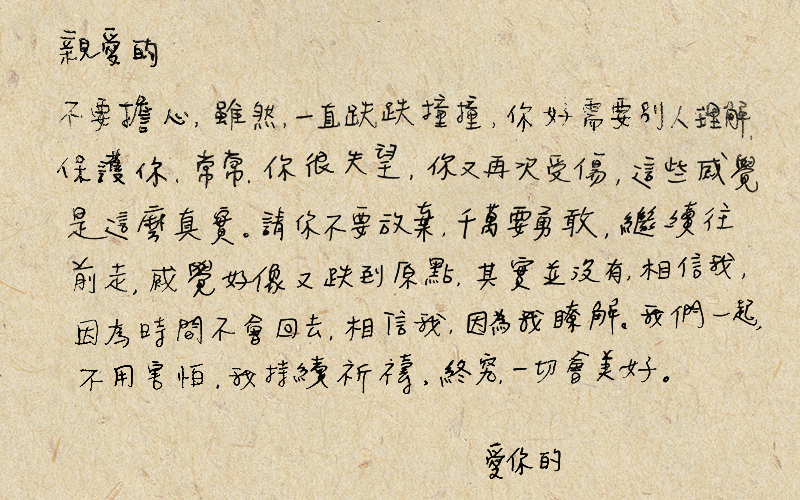 親愛的
不要擔心，雖然，一直跌跌撞撞，你好需要別人理解，
保護你，常常，你很失望，你又再次受傷，這些感覺
是這麼真實。請你不要放棄，千萬要勇敢，繼續往
前走，感覺好像又跌到原點，其實並沒有，相信我，
因為時間不會回去，相信我，因為我瞭解。我們一起，
不用害怕，我持續祈禱，終究，一切會美好。
愛你的